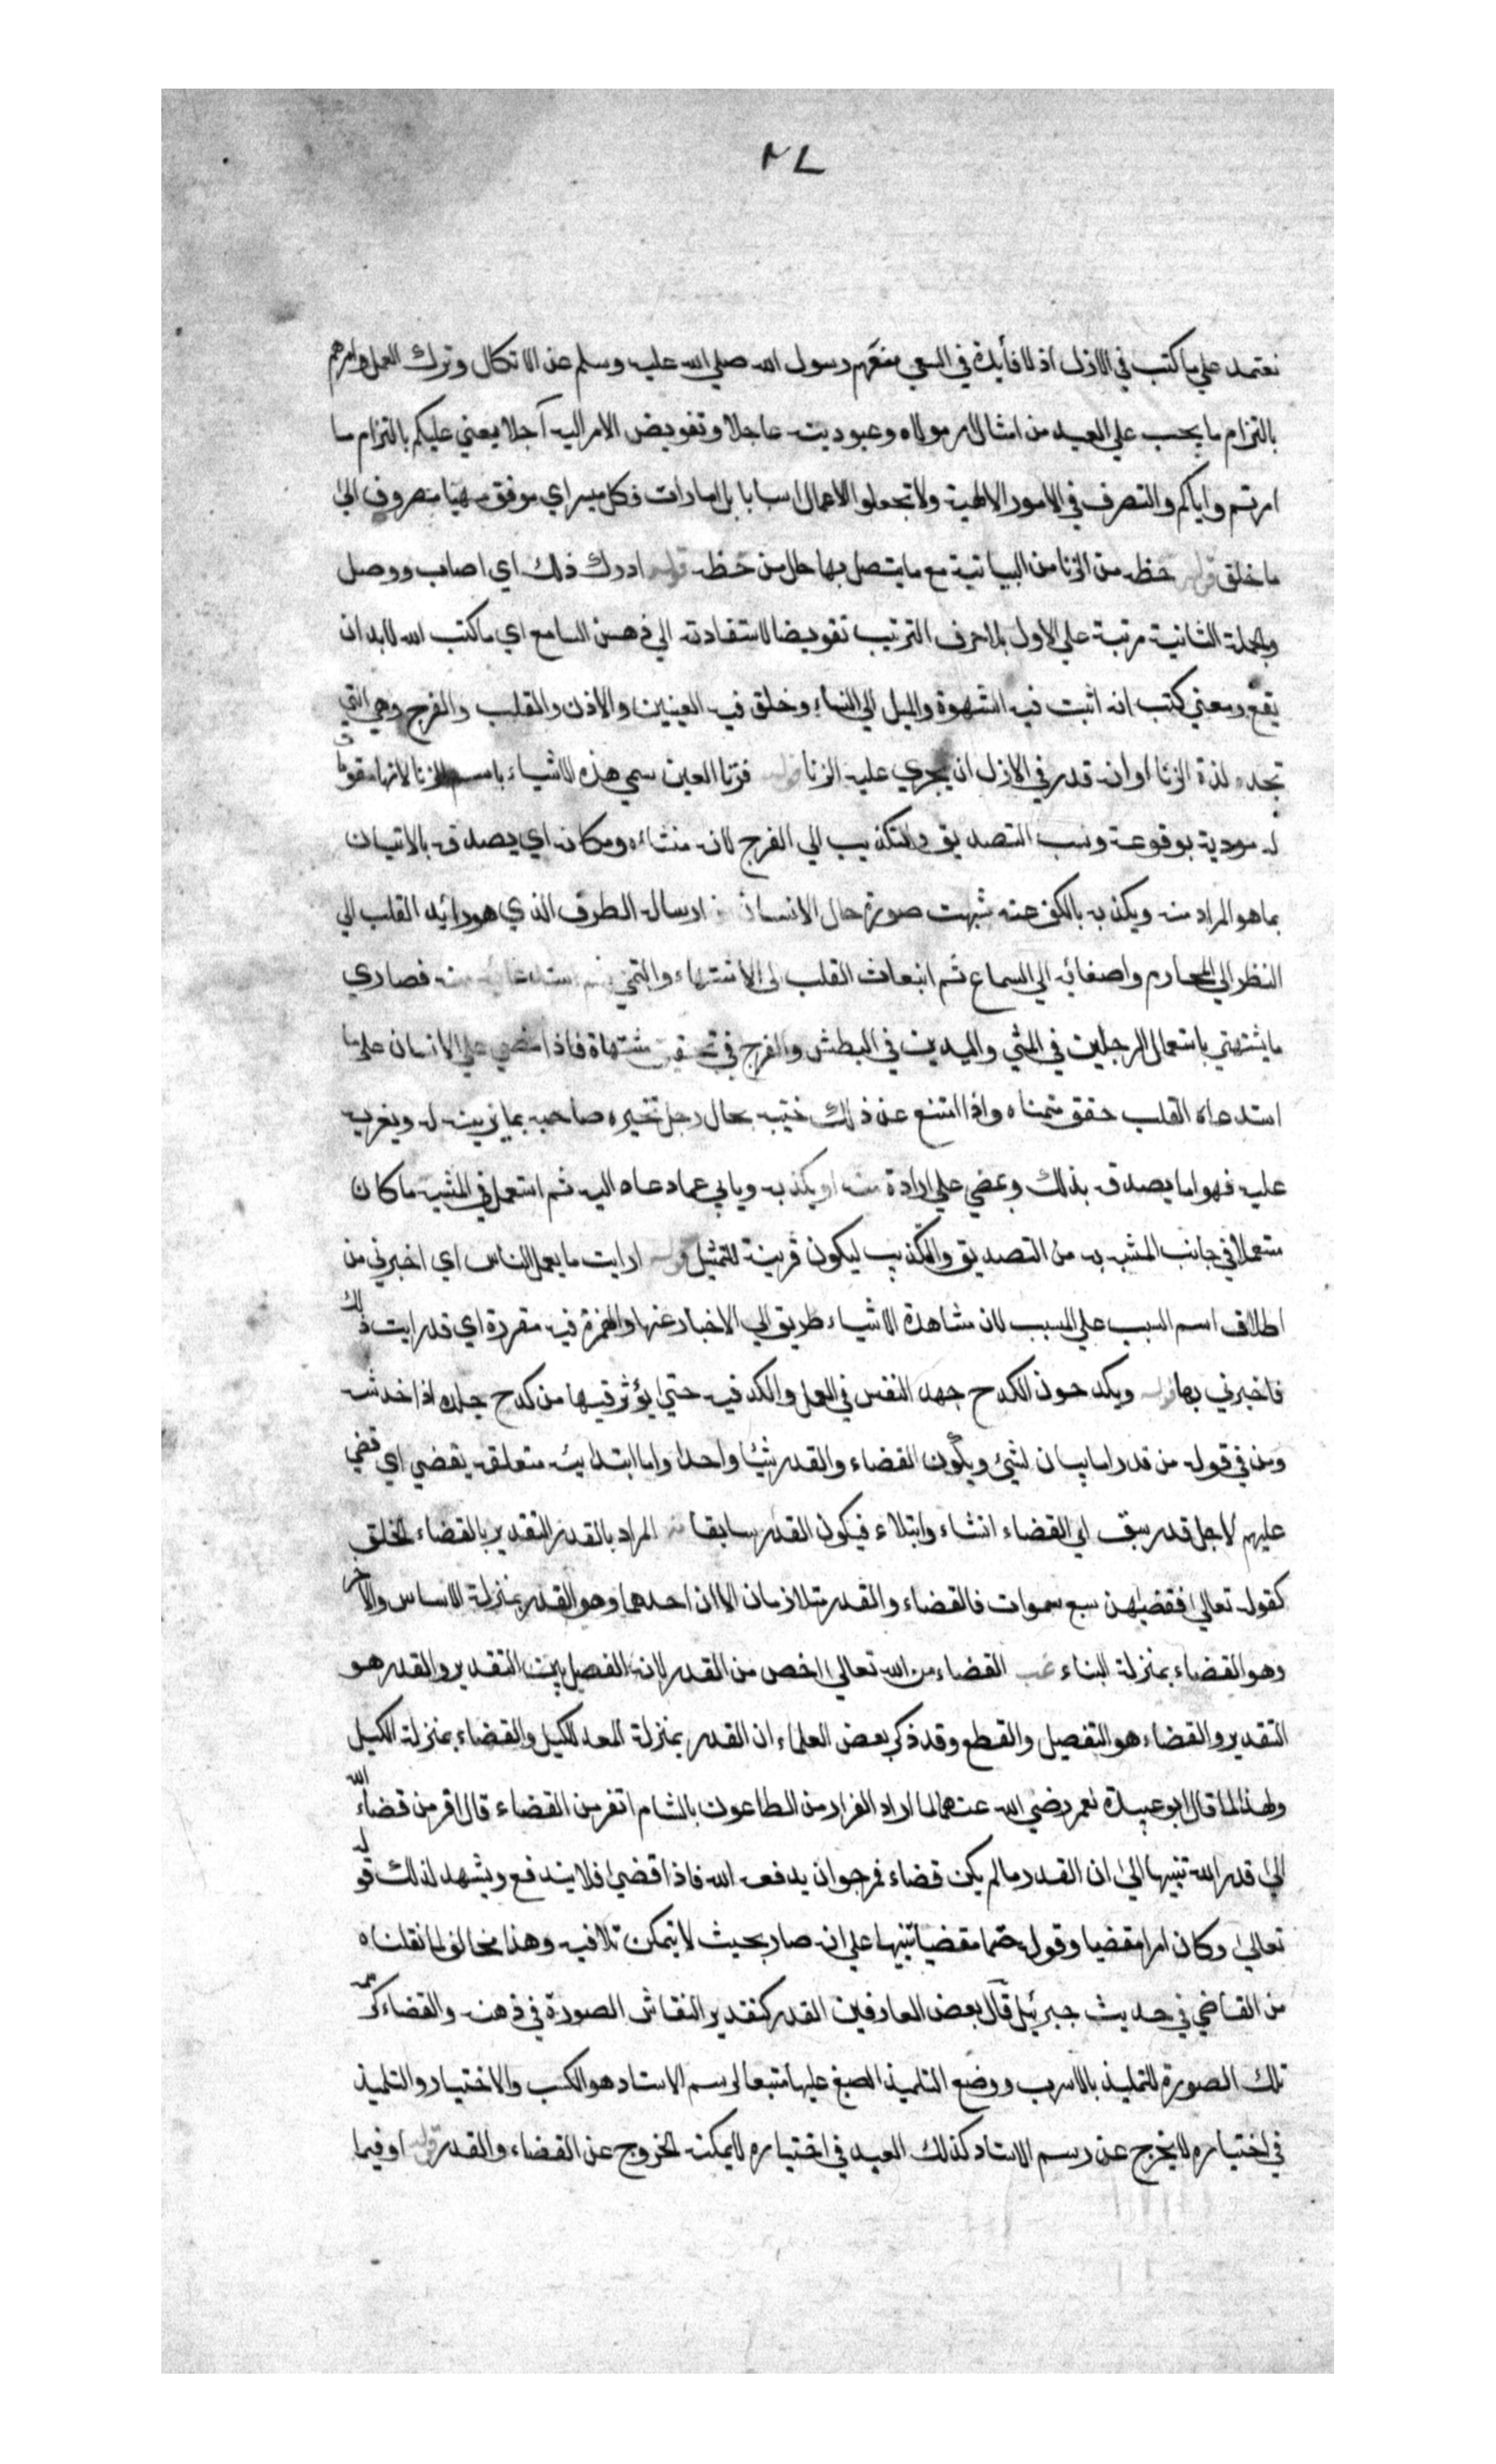 ٢٧
نعتمد علي ما كتب في الازل اذ لا فأيدة في السعي منعهم رسول الله صلي الله عليه وسلم عن الاتكال وترك العمل وامرهم
بالتزام ما يجب علي العبد من امتثال امر مولاه وعبوديته عاجلا وتفويض الامر اليه آجلا يعني عليكم بالتزام ما
امرتم واياكم والتصرف في الامور الالهية ولا تجعلوا الاعمال اسبابا بل امارات فكل ميسر اي موفق مهيا مصروف الي
ما خلق قوله حظه من الزنا من البيانية مع ما يتصل بها حال من حظه قوله ادرك ذلك اي اصاب ووصل
والجملة الثانية مرتبة علي الاول بلا حرف الترتيب تفويضا لاستفادته الي ذهن السامع اي ما كتب الله لابد ان
يقع ومعني كتب انه اثبت فيه الشهوة والميل الي النساء وخلق فيه العينين والاذن والقلب والفرج وهي التي
تجد لذة الزنا او انه قدر في الازل ان يجري عليه الزنا قوله فزنا العين سمي هذه الاشياء باسم الزنا لانها مقدمات
له مودية بوقوعه ونسب التصديق والتكذيب الي الفرج لانه منشاءه ومكانه اي يصدقه بالاتيان
بما هو المراد منه ويكذبه بالكف عنه شبهت صورة حال الانسان من ارساله الطرف الذي هو رائد القلب الي
النظر الي المحارم واصغائه الي السماع ثم انبعاث القلب الي الاشتهاء والتمني ثم استدعائه منه فصاري
ما يشتهي باستعمال الرجلين في المشي واليدين في البطش والفرج في تحقيق مشتهاة فاذا مضي الانسان علي ما
استدعاه القلب حقق متمناه واذا امتنع عن ذلك خيبه بحال رجل تخيره صاحبه بما يزينه له ويغريه
عليه فهو اما يصدقه بذلك ويمضي علي ارادة منه او يكذبه ويابي عما دعاه اليه ثم استعمل في المشبه ما كان
مستعملا في جانب المشبه به من التصديق والتكذيب ليكون قرينة للتمثيل قوله ارايت ما يعمل الناس اي اخبرني من
اطلاق اسم السبب علي المسبب لان مشاهدة الاشياء طريق الي الاخبار عنها والهمزة فيه مقررة اي قد رايت ذلك
فاخبرني بها قوله ويكدحون الكدح جهد النفس في العمل والكد فيه حتي يؤثر فيها من كدح جلده اذا خدشه
ومن في قوله من قدر اما بيان لشيء ويكون القضاء والقدر شيئا واحدا واما ابتدايية متعلقة بقضي اي قضي
عليهم لاجل قدر سبق اي القضاء انشاء وابتداء فيكون القدر سابقا المراد بالقدر التقدير بالقضاء الخلق
كقوله تعالي فقضيهن سبع سموات فالقضاء والقدر متلازمان الا ان احدهما وهو القدر بمنزلة الاساس والاخر
وهو القضاء بمنزلة البناء غب القضاء من الله تعالي اخص من القدر لانه الفصل بين التقدير والقدر هو
التقدير والقضاء هو التفصيل والقطع وقد ذكر بعض العلماء ان القدر بمنزلة المعد للكيل والقضاء بمنزلة الكيل
ولهذا لما قال ابو عبيدة لعمر رضي الله عنهما لما اراد الفرار من الطاعون بالشام اتفر من القضاء قال افر من قضاء الله
الي قدر الله تنبيها الي ان القدر ما لم يكن قضاء فمرجو ان يدفعه الله فاذا قضي فلا يندفع ويشهد لذلك قوله
تعالي وكان امرا مقضيا وقوله حتما مقضيا تنبيها علي انه صار بحيث لا يتمكن تلافيه وهذا مخالف لما نقلناه
من القاضي في حديث جبرئيل قال بعض العارفين القدر كتقدير النقاش الصورة في ذهنه والقضاء كرسمه
تلك الصورة للتلميذ بالاسرب ووضع التلميذ الصبغ عليها متبعا لرسم الاستاد هو الكسب والاختيار والتلميذ
في اختياره لا يخرج عن رسم الاستاد كذلك العبد في اختياره لا يمكنه الخروج عن القضاء والقدر قوله او فيما